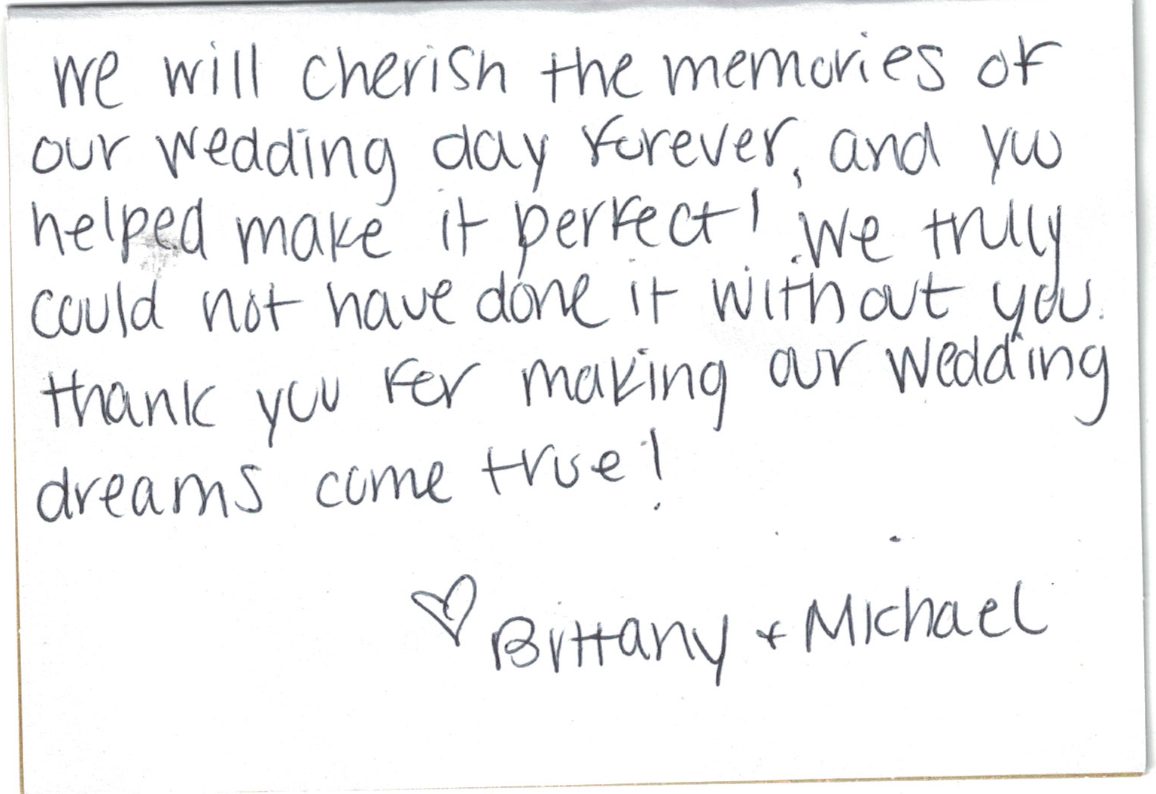 We will cherish the memories of
our wedding day forever, and you
helped make it perfect! We truly
could not have done it without you.
thank you for making our wedding
dreams come true!
♡ Brittany + Michael